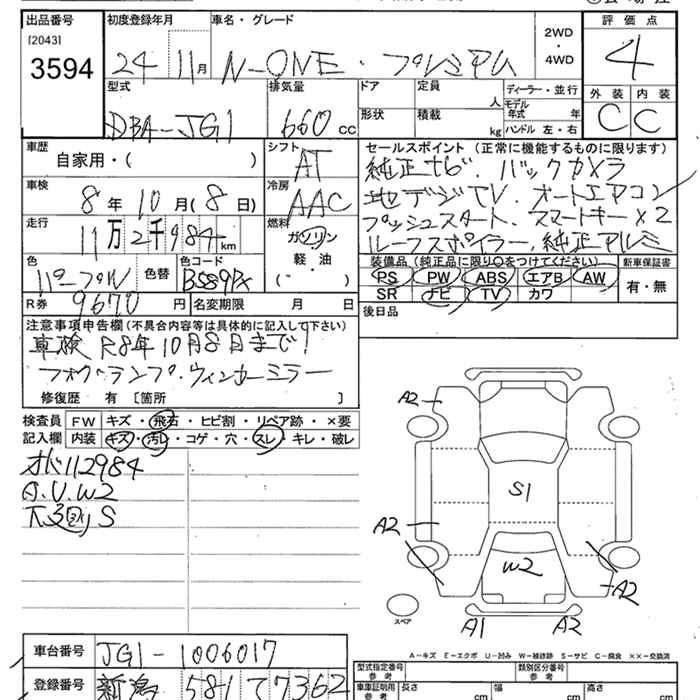 出品番号 初度登録年月 車名・グレード 2WD・4WD 評価点
[2043]
3594 24 11月 N-ONE・プレミアム 4
型式 排気量 ドア 定員 人 ディーラー・並行 外装 内装
DBA-JG1 660cc 形状 積載 kg モデル年式 年 C C
ハンドル 左・右
車歴 シフト セールスポイント(正常に機能するものに限ります)
自家用・( ) AT 純正ナビ、バックカメラ
車検 冷房 地デジTV、オートエアコン
8年10月(8日) AAC プッシュスタート、スマートキー×2
走行 燃料 ルーフスポイラー、純正アルミ
11万2千984km ガソリン
軽・油
( )
装備品(純正品に限り○をつけてください) 新車保証書
PS PW ABS エアB AW 有・無
SR ナビ TV カワ
色 色替 色コード
パープルW B589Px
後日品
R券 9670円 名変期限 月 日
注意事項申告欄(不具合内容等は具体的に記入して下さい)
車検 R8年10月8日まで!
フォグランプ・ウィンカーミラー
修復歴 有〔箇所 〕
検査員 FW キズ・飛石・ヒビ割・リペア跡・×要
記入欄 内装 キズ・汚レ・コゲ・穴・スレ・キレ・破レ
オド112984
A.U.W2
下廻りS
A2
S1
A2
W2
A2
A1 A2
スペア
A-キズ E-エクボ U-凹み W-補修跡 S-サビ C-腐食 ××-交換済
車台番号 JG1-1006017
登録番号 新潟 581 て7362
型式指定番号 参考 類別区分番号 参考
車庫証明用 参考 長さ cm 幅 cm 高さ cm